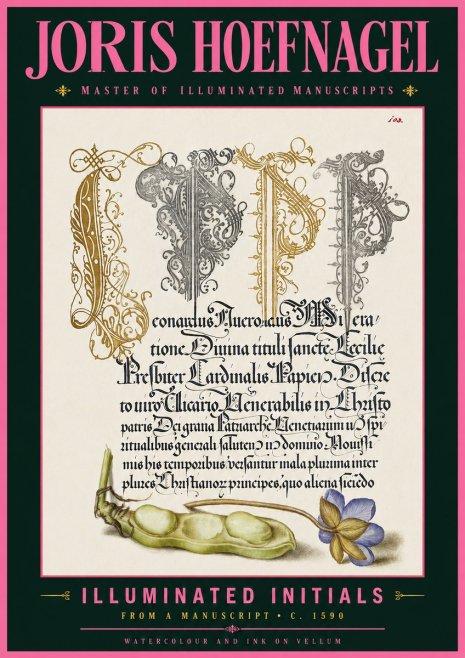 JORIS HOEFNAGEL
MASTER OF ILLUMINATED MANUSCRIPTS
103.
L P P P
eonardus Misera/
tione Divina tituli sancte Cecilie
Presbiter Cardinalis Papien. Discre
to viro Vicario Venerabilis in Christo
patris Dei gratia Patriarche Venetiarum in Spi
ritualibus generali salutem in domino Novissi
mis his temporibus versantur mala plurima inter
plures Christianor principes, quo aliena
ILLUMINATED INITIALS
FROM A MANUSCRIPT • C. 1590
WATERCOLOUR AND INK ON VELLUM